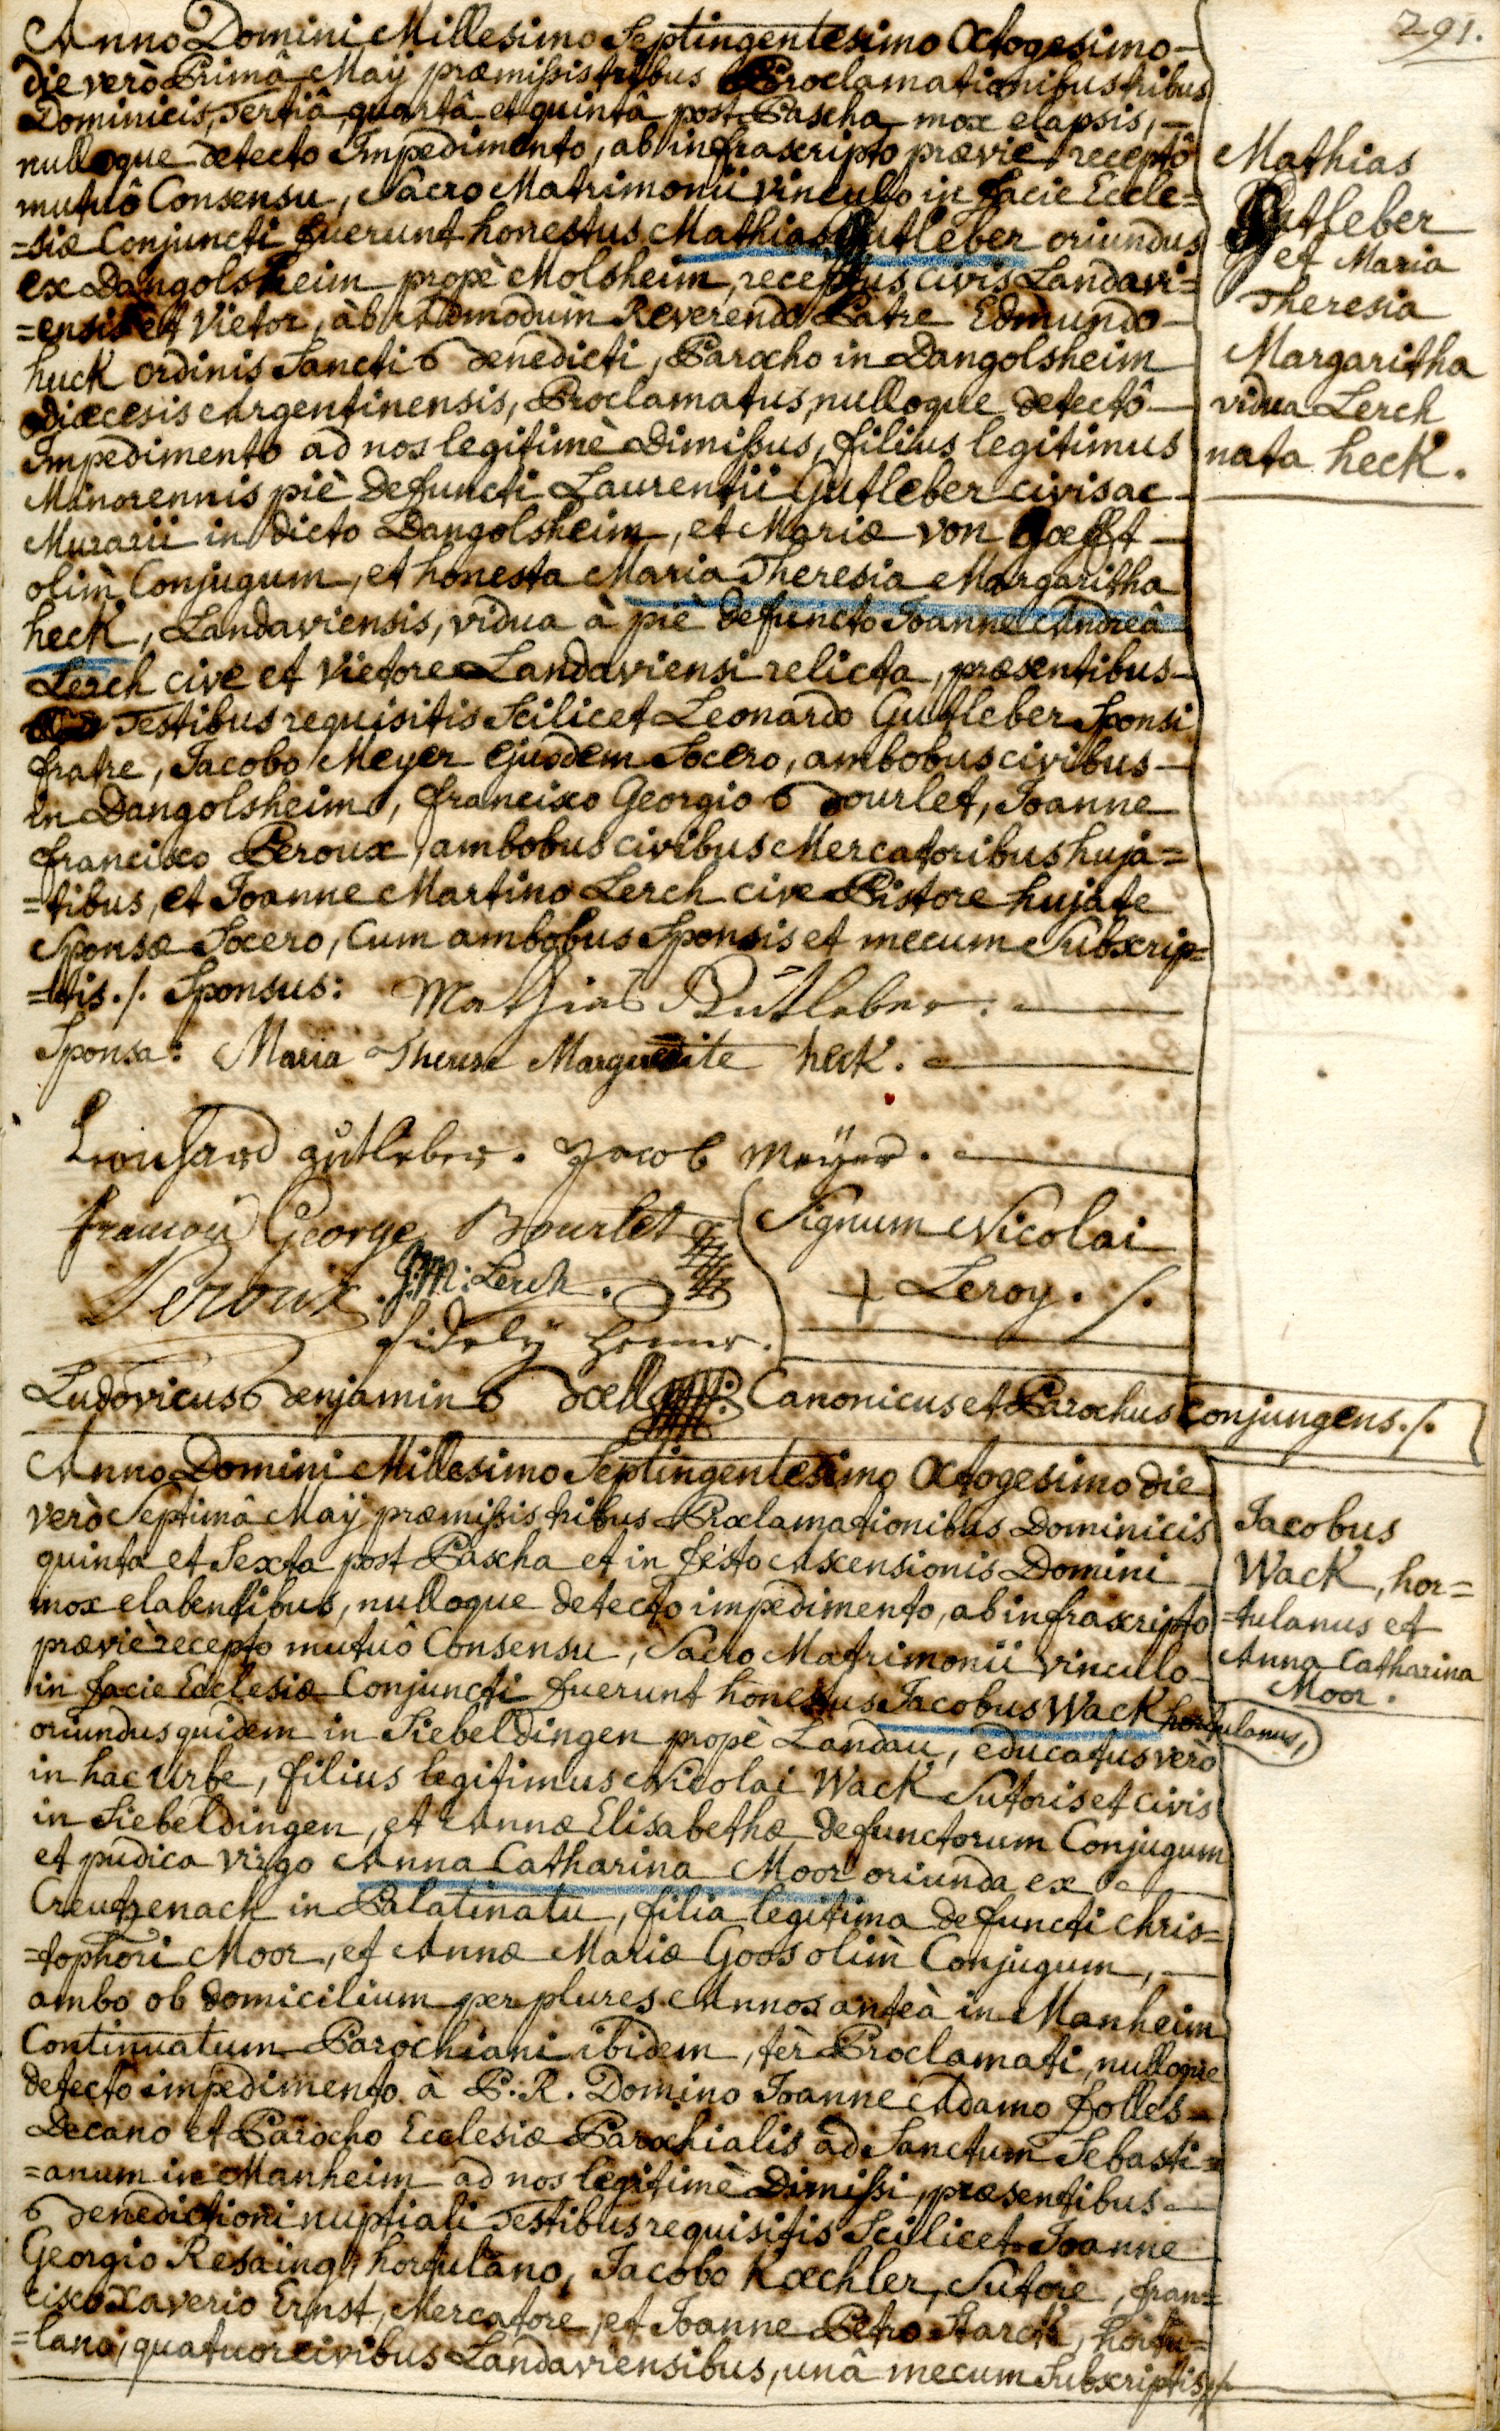 291.
Anno Domini Millesimo Septingentesimo Octogesimo
die verò Primâ Maij præmissis tribus Proclamationibus tribus
Dominicis, Tertiâ, quartâ et quintâ post Pascha mox elapsis,
nulloque detecto Impedimento, ab infrascripto præviè receptô
mutuô Consensu, Sacro Matrimonii vinculo in facie Eccle=
=siæ Conjuncti fuerunt honestus Mathias Gutleber oriundus
ex Dangolsheim propè Molsheim, receptus civis Landavi=
=ensis et Vietor, àb Admodùm Reverendo Patre Edmundo
huck ordinis Sancti Benedicti, Parocho in Dangolsheim
Diæcesis Argentinensis, Proclamatus, nulloque detectô
Impedimento ad nos legitimè Dimissus, filius legitimus
Minorennis piè Defuncti Laurentii Gutleber civis ac
Murarii in dicto Dangolsheim, et Mariæ von
olim Conjugum, et honesta Maria Theresia Margaritha
heck, Landaviensis, vidua à piè defuncto Joanne Andreâ
Lerch cive et Vietore Landaviensi relicta, præsentibus
Testibus requisitis Scilicet Leonardo Gutleber Sponsi
fratre, Jacobo Meyer ejusdem Socero, ambobus civibus
in Dangolsheim, francisco Georgio Bourlet, Joanne
francisco Peroux, ambobus civibus Mercatoribus huja=
=tibus, et Joanne Martino Lerch cive Pistore hujate
Sponsæ Socero, Cum ambobus Sponsis et mecum Subscrip=
=tis./. Sponsus: Mathias Gutleber.
Sponsa: Maria Therese Marguerite heck.
Leonhard gütleber. Jacob Meÿer.
francois George Bourlet
Peroux J:M: Lerch.
fidely
Signum Nicolai
+ Leroy. /.
Ludovicus Benjamin Boell Canonicus et Parochus Conjungens./.
Mathias
Gutleber
et Maria
Theresia
Margaritha
vidua Lerch
nata heck.
Anno Domini Millesimo Septingentesimo Octogesimo die
verò Septimâ Maij præmissis tribus Proclamationibus Dominicis
quinta et Sexta post Pascha et in festo Ascensionis Domini
mox elabentibus, nulloque detecto impedimento, ab infrascripto
præviè recepto mutuô Consensu, Sacro Matrimonii vinculo
in facie Ecclesiæ Conjuncti fuerunt honestus Jacobus Wack hortulanus,
oriundus quidem in Siebeldingen propè Landau, educatus verò
in hac Urbe, filius legitimus Nicolai Wack Sutoris et civis
in Siebeldingen, et Annæ Elisabethæ defunctorum Conjugum
et pudica virgo Anna Catharina Moor oriunda ex
Creutzenach in Palatinatu, filia legitima defuncti Chris=
=tophori Moor, et Annæ Mariæ Goos olim Conjugum,
ambo ob domicilium per plures Annos anteà in Manheim
Continuatum Parochiani ibidem, tèr Proclamati, nulloque
detecto impedimento à P: R. Domino Joanne Adamo folles
Decano et Parocho Ecclesiæ Parochialis ad Sanctum Sebasti=
=anum in Manheim ad nos legitimè Dimissi, præsentibus
Benedictioni nuptiali Testibus requisitis Scilicet Joanne
Georgio Resaing, hortulano, Jacobo Kæchler, Sutore, fran=
cisco Xaverio Ernst, Mercatore, et Joanne Petro Starck, hortu=
=lano, quatuor civibus Landaviensibus, unâ mecum Subscriptis./.
Jacobus
Wack, hor=
=tulanus et
Anna Catharina
Moor.